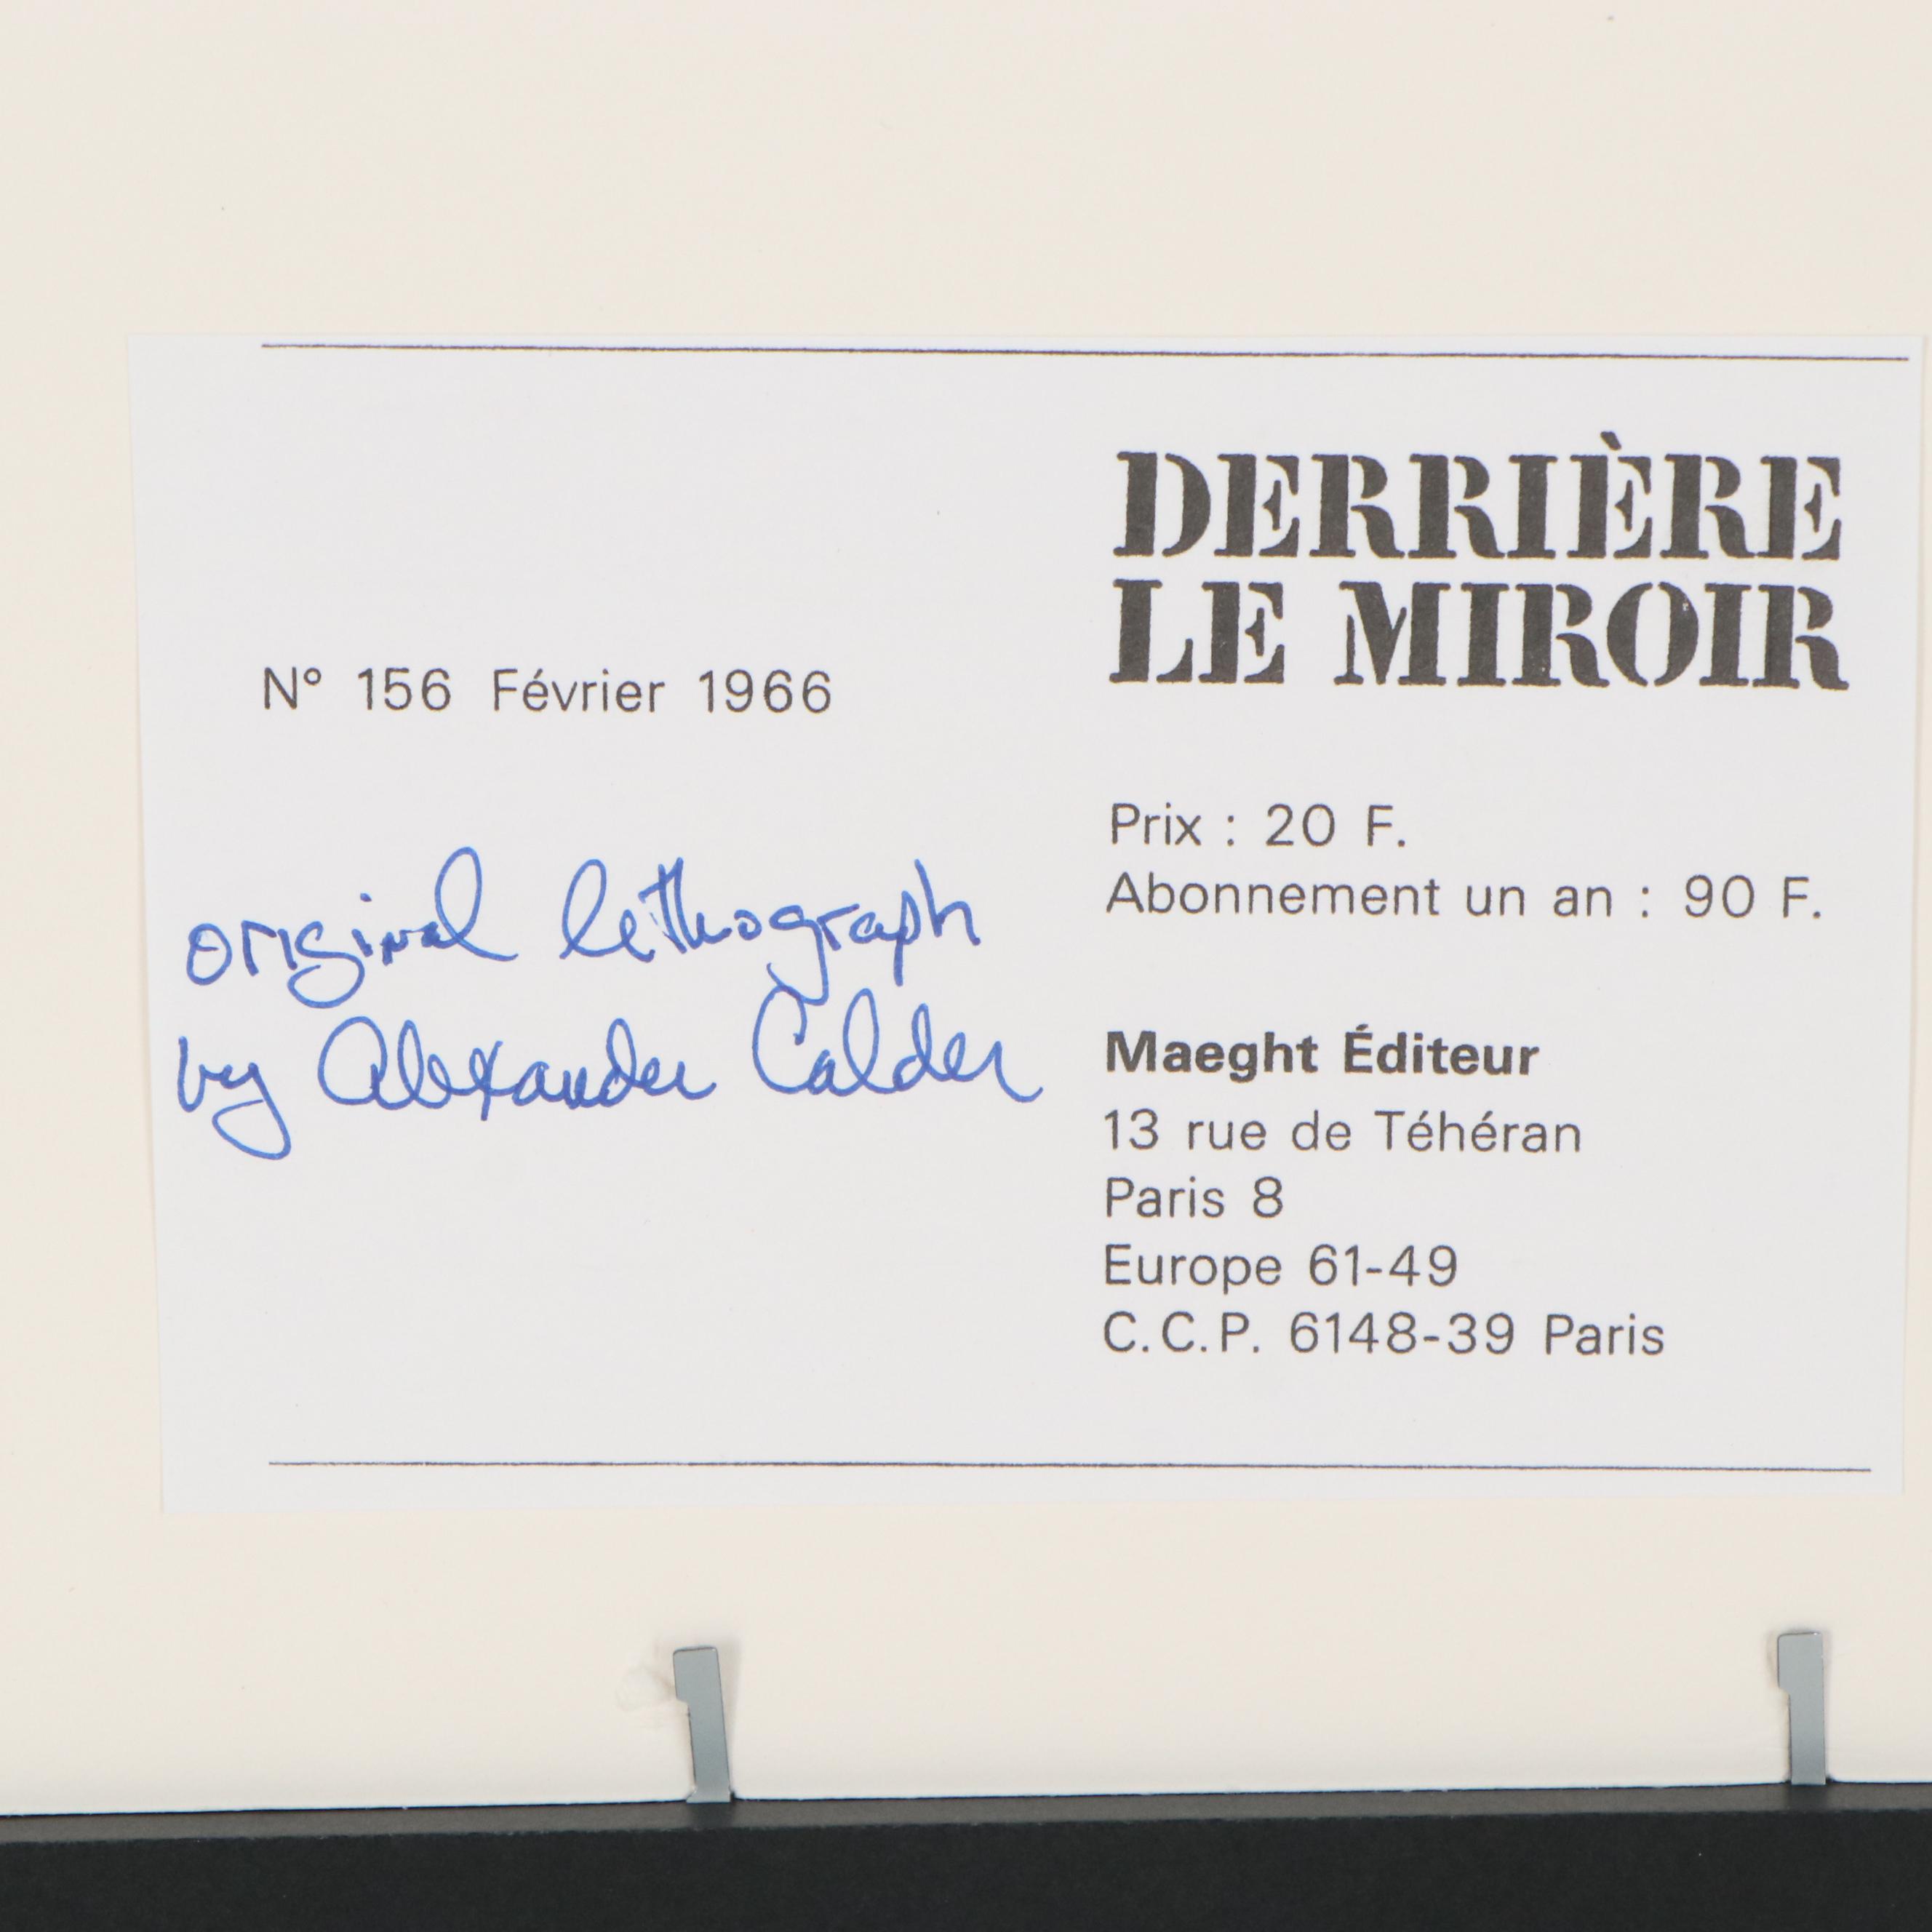 DERRIÈRE
LE MIROIR
N° 156 Février 1966
Prix : 20 F.
Abonnement un an : 90 F.
original lithograph
by Alexander Calder
Maeght Éditeur
13 rue de Téhéran
Paris 8
Europe 61-49
C.C.P. 6148-39 Paris